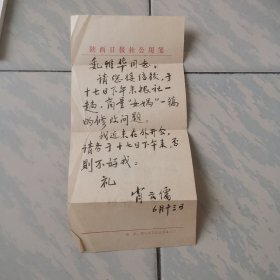 陕西日报社公用笺
毛维华同志:
请您接信后,于
十七日下午来报社一
趟,商量“女娲”一稿
的修改问题。
我近来在外开会,
请务于十七日下午来,否
则不好找。
礼
肖云儒
6月十三日